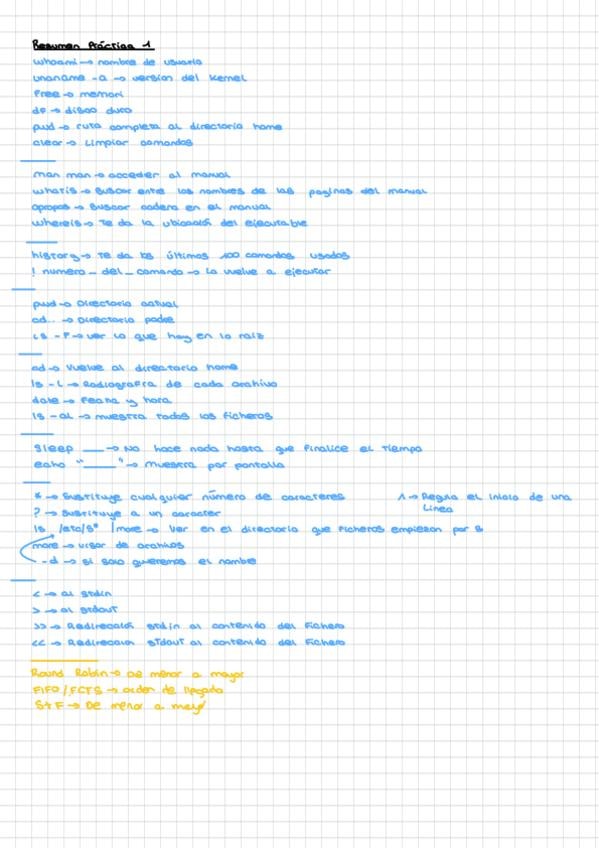 Resumen Práctica 1
whoami → nombre de usuario
unaname -a → version del Kernel
Free → memori
df → disco duro
pwd → ruta completa al directorio home
clear → Limpiar comandos
man man → acceder al manual
whatis → Buscar entre los nombres de las paginas del manual
apropos → Buscar cadena en el manual
whereis → Te da la ubicación del ejecutable
history → Te da los últimos 100 comandos usados
! numero_del_comando → Lo vuelve a ejecutar
pwd → Directorio actual
cd.. → Directorio padre
ls -F → ver lo que hay en la raiz
cd → Vuelve al directorio home
ls -L → Radiografia de cada archivo
date → Fecha y hora
ls -al → muestra todos los ficheros
sleep ___ → No hace nada hasta que finalice el tiempo
echo "____" → muestra por pantalla
* → Sustituye cualquier número de caracteres
^ → Regula el inicio de una
Linea
? → Sustituye a un caracter
ls /etc/s* | more → Ver en el directorio que ficheros empiezan por s
more → visor de archivos
-d → si solo queremos el nombre
< → al stdin
> → al stdout
>> → Redirección stdin al contenido del fichero
<< → Redirección stdout al contenido del fichero
Round Robin → De menor a mayor
FIFO / FCFS → orden de llegada
SJF → De menor a mayor